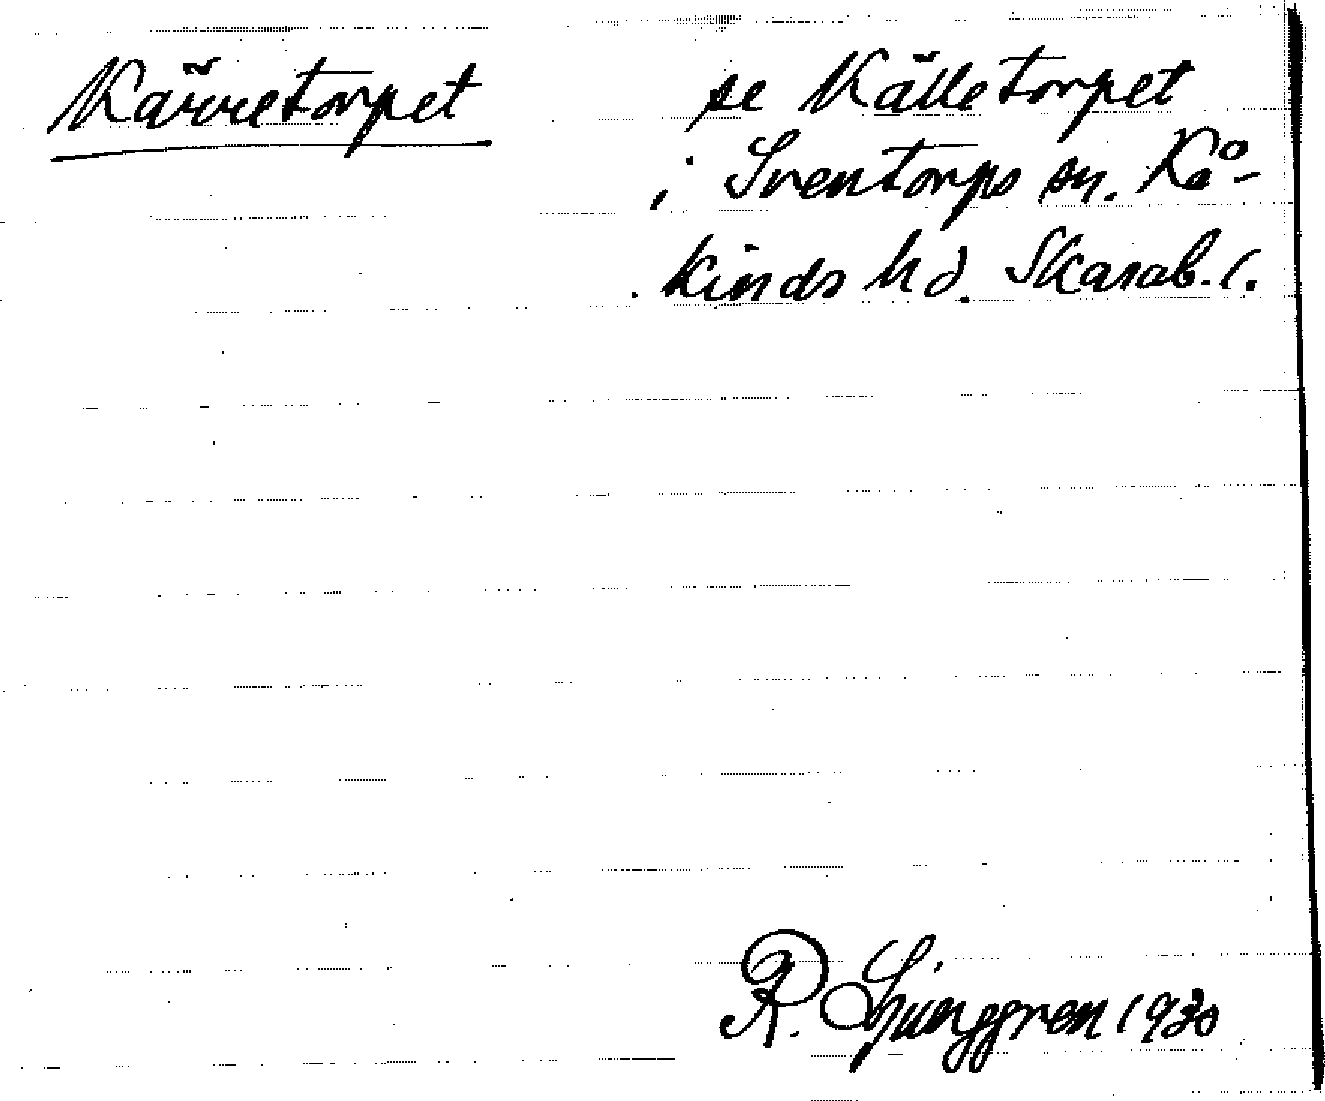 Kärretorpet
se Källetorpet
i Sventorps sn. Kå-
kinds hd. Skarab. l.
R. Ljunggren 1930